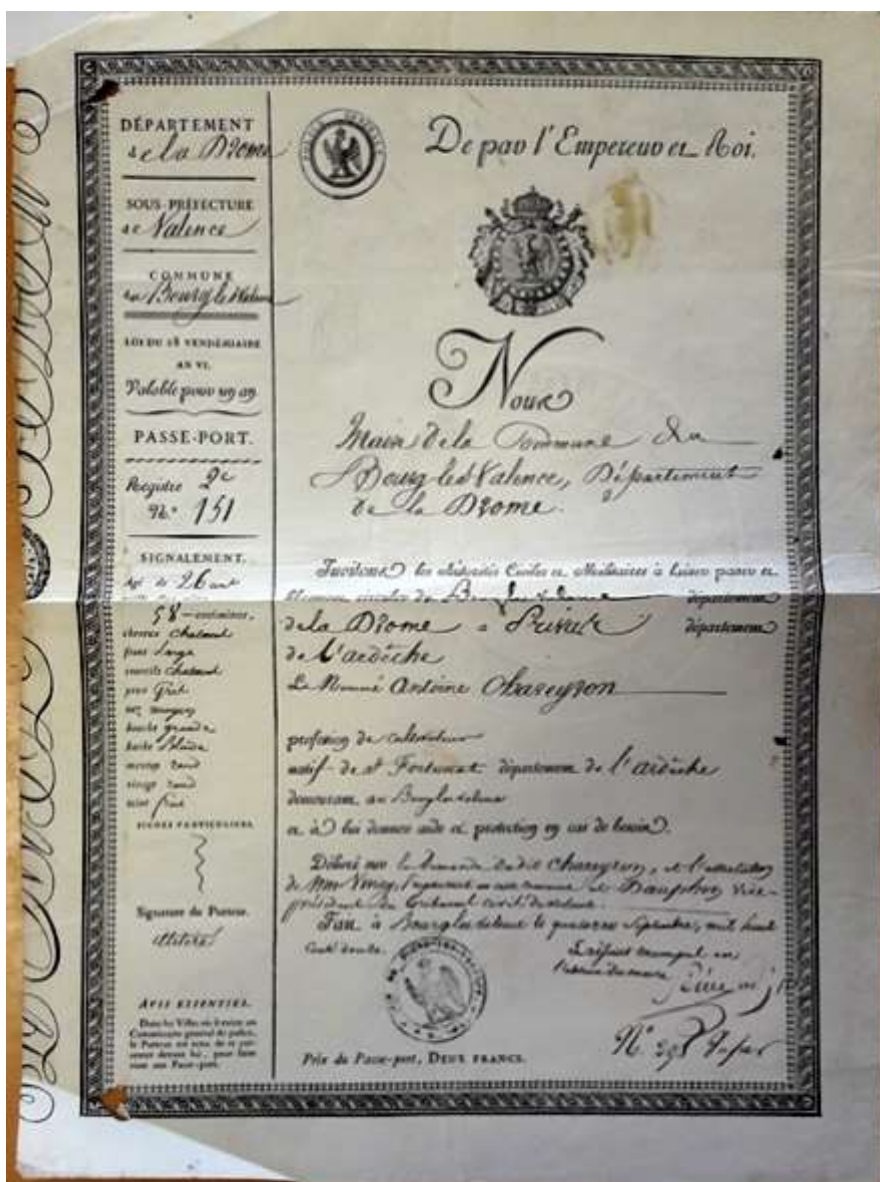 DÉPARTEMENT
de la Drome
SOUS-PRÉFECTURE
de Valence
COMMUNE
du Bourg les Valence
LOI DU 28 VENDÉMIAIRE
AN VI.
Valable pour un an
PASSE-PORT.
Registre 2e
N.° 151
SIGNALEMENT.
Agé de 26 ans
58 centimètres,
cheveux chatains
front large
sourcils chatains
yeux Gris
nez moyen
bouche grande
barbe
menton rond
visage rond
teint
SIGNES PARTICULIERS.
Signature du Porteur.
illitéré
AVIS ESSENTIEL.
Dans les Villes où il existe un
Commissaire général de police,
le Porteur est tenu de se présenter
devant lui, pour faire
viser son Passe-port.
De par l'Empereur et Roi.
Nous
Maire de la Commune du
Bourg les Valence, Département
de la Drome.
Invitons les Autorités Civiles et Militaires à laisser passer et
librement circuler de Bourg les valence département
de la Drome à Privas département
de L'ardèche
Le Nommé Antoine Chareyron
profession de cultivateur
natif de St Fortunat département de l'ardèche
demeurant au Bourg les valence
et à lui donner aide et protection en cas de besoin.
Délivré sur la demande dudit Chareyron, et l'attestation
de Mrs
président du tribunal civil de valence.
Fait à Bourg les valence le septembre, mil huit
Cent douze.
N.°
Prix du Passe-port, DEUX FRANCS.